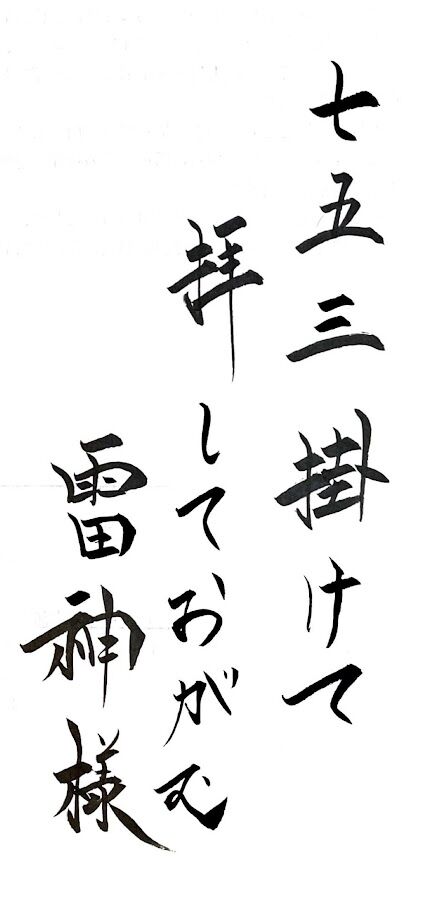 七五三掛けて
拝しておがむ
雷神様